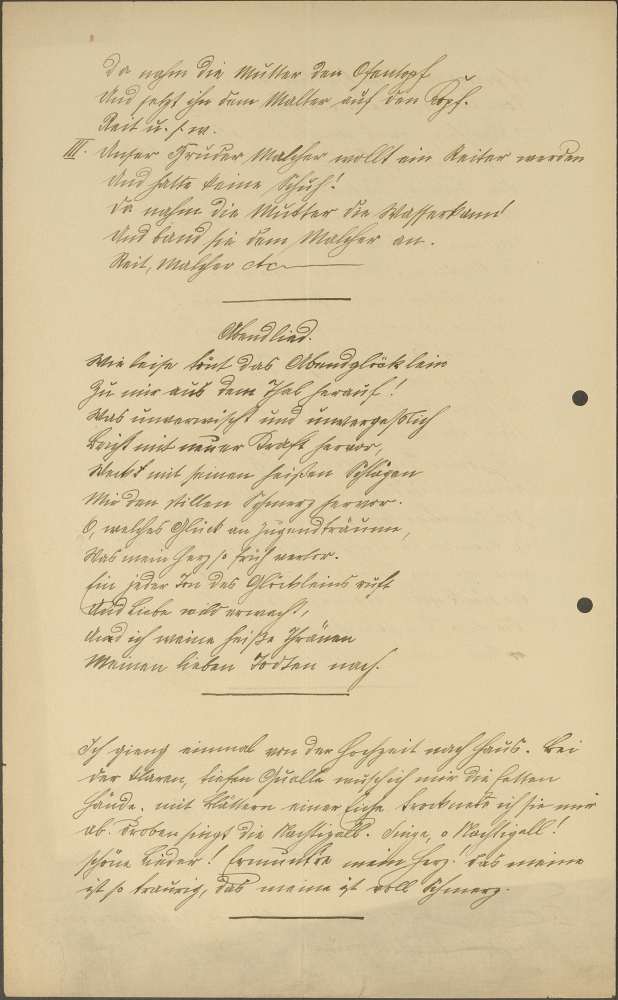 Da nahm die Mutter den Ofentopf
Und setzt ihn dem Malter auf den Kopf.
Reit u. s. w.
III. Unser Bruder Malcher wollt ein Reiter werden
Und hatte keine Schuh!
Da nahm die Mutter die Wasserkann'
Und band sie dem Malcher an.
Reit, Malcher etc
Abendlied.
Wie leise tönt das Abendglöcklein
Zu mir aus dem Thal herauf!
Was unverwischt und unvergeßlich
Bricht mit neuer Kraft hervor,
Weckt mit seinen heißen Schlägen
Mir den stillen Schmerz hervor.
O, welches Glück an Jugendträumen,
Was mein Herz so früh verlor.
Ein jeder Ton des Glöckleins ruft
Und Liebe wild erwacht,
Und ich weine heiße Thränen
Meinen lieben Todten nach.
Ich gieng einmal von der Hochzeit nach Haus. Bei
der klaren, tiefen Quelle wusch ich mir die fetten
Hände. mit Blättern einer Eiche trocknete ich sie mir
ab. Droben singt die Nachtigall. Singe, o Nachtigall!
schöne Lieder! Ermuntre mein Herz! das meine
ist so traurig, das meine ist voll Schmerz.